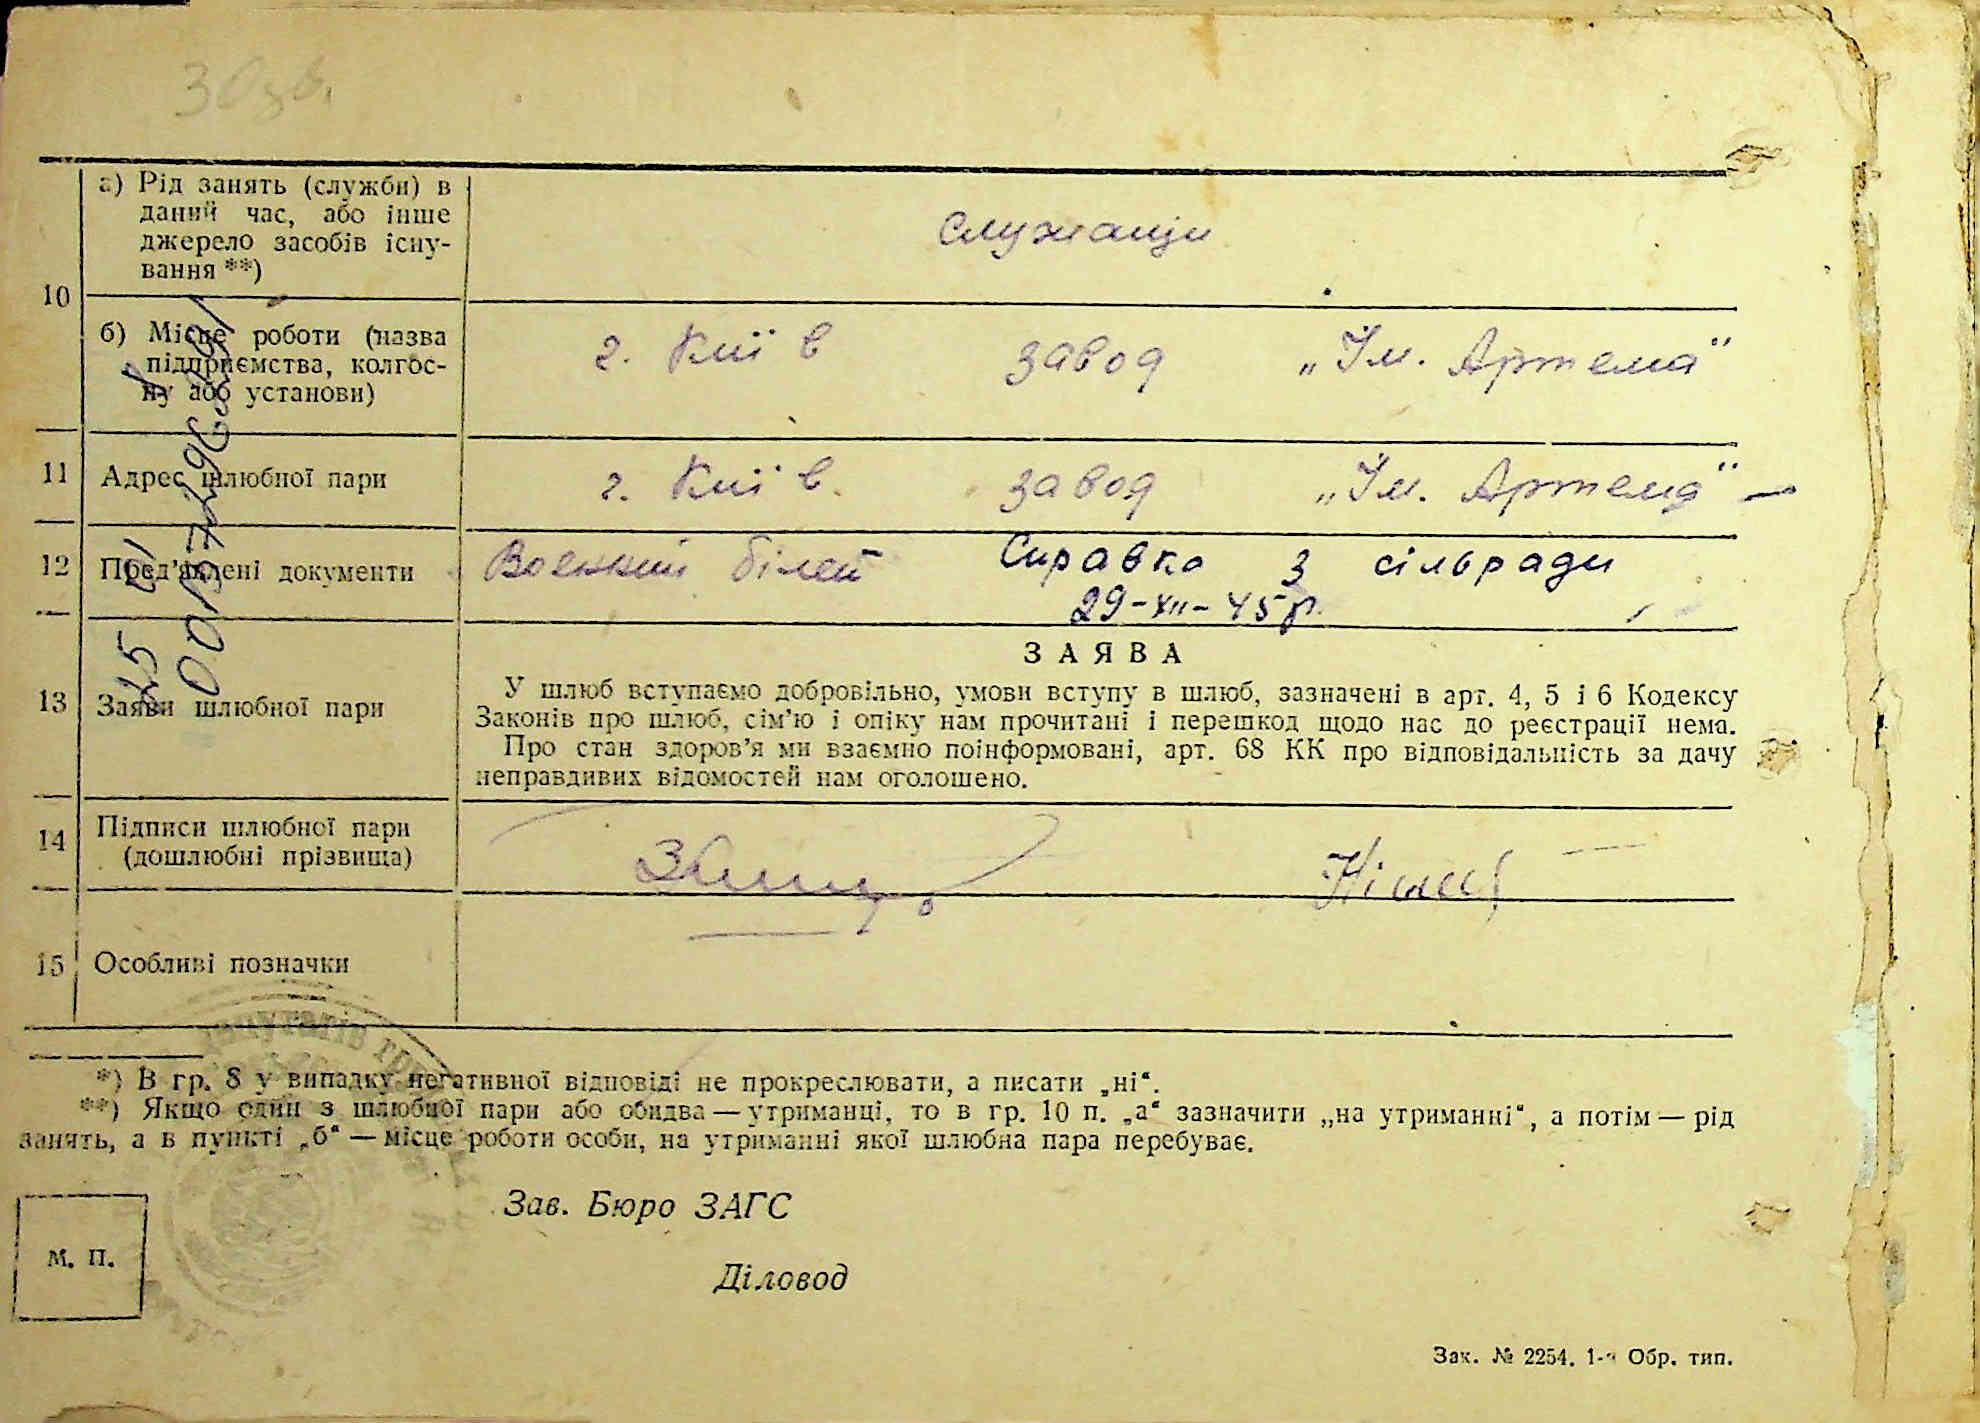 а) Рід занять (служби) в
даний час, або інше
джерело засобів існу-
вання **)
Служащи
10
б) Місце роботи (назва
підприємства, колгос-
пу або установи)
г. Київ завод „Ім. Артема"
11 Адрес шлюбної пари г. Київ завод „Ім. Артема" —
12 Пред'явлені документи Воєнний білет Справка з сільради
29-XII-45 р.
ЗАЯВА
13 Заяви шлюбної пари
У шлюб вступаємо добровільно, умови вступу в шлюб, зазначені в арт. 4, 5 і 6 Кодексу
Законів про шлюб, сім'ю і опіку нам прочитані і перешкод щодо нас до реєстрації нема.
Про стан здоров'я ми взаємно поінформовані, арт. 68 КК про відповідальність за дачу
неправдивих відомостей нам оголошено.
14 Підписи шлюбної пари
(дошлюбні прізвища)
15 Особливі позначки
*) В гр. 8 у випадку негативної відповіді не прокреслювати, а писати „ні".
**) Якщо один з шлюбної пари або обидва — утриманці, то в гр. 10 п. „а" зазначити „на утриманні", а потім — рід
занять, а в пункті „б" — місце роботи особи, на утриманні якої шлюбна пара перебуває.
Зав. Бюро ЗАГС
М. П.
Діловод
Зак. № 2254. 1-а Обр. тип.